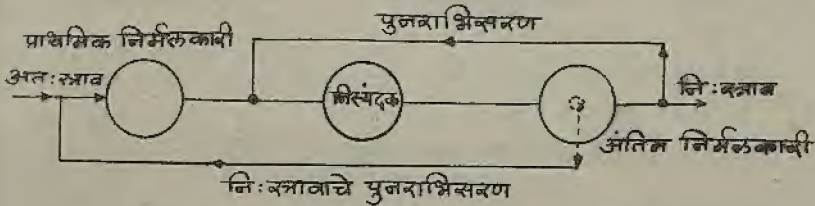 पुनराभिसरण
प्राथमिक निर्मलकारी
अंत:स्त्राव
निस्यंदक
नि:स्त्राव
अंतिम निर्मलकारी
नि:स्त्रावाचे पुनराभिसरण